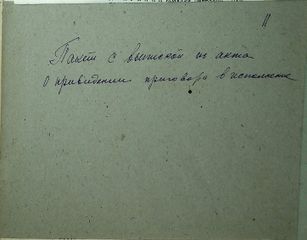 11
Пакет с выпиской из акта
о приведении приговора в исполнение